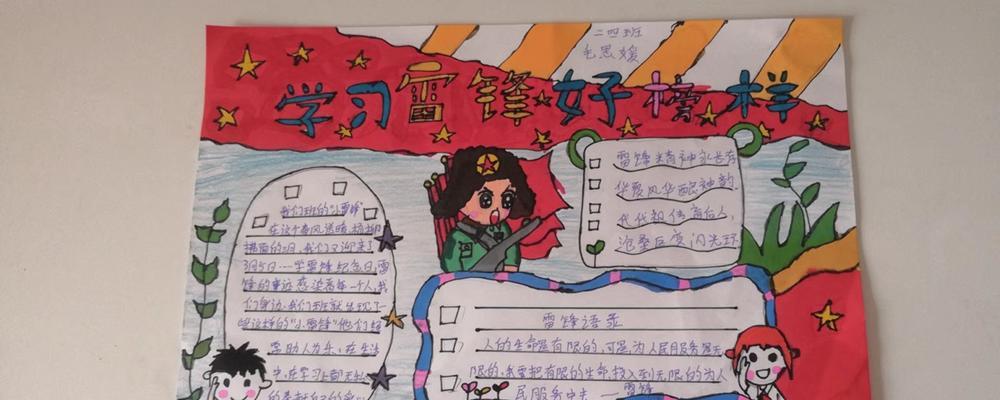 二四班
毛思媛
学习雷锋好榜样
我们班的"小雷锋"
在这个春风送暖,杨柳
拂面的3月,我们又迎来了
3月5日——学雷锋纪念日,雷
锋的事迹感染着每一个人,我
们身边,我们班就出现了一
些这样的"小雷锋"他们经
常助人为乐,在生活
中,在学习上都无私
雷锋精神永长存
华夏风华酿神韵
代代相传育后人,
沧桑巨变闪光环
雷锋语录
人的生命是有限的,可是,为人民服务是无
限的,我要把有限的生命,投入到无限的为人
民服务中去 ——雷锋